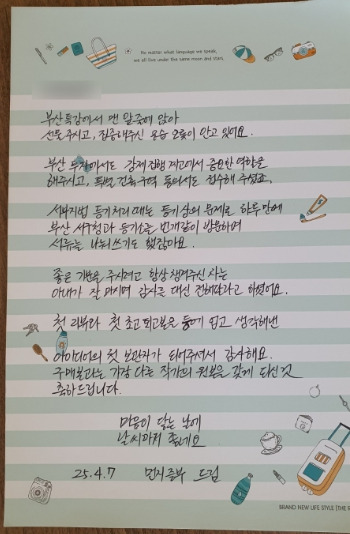 No matter what language we speak,
we all live under the same moon and stars.
부산특강에서 맨 앞줄에 앉아
선물 주시고, 집중해주신 모습 오롯이 안고 있어요.
부산 투자에서도 강제집행 제고에서 중요한 역할을
해주시고, 특별 건축구역 등에서도 접수해 주셨고,
등기처리 때는 등기상의 문제로 하루만에
부산 등기소를 번개같이 방문하여
서류를 나눠쓰기도 했잖아요.
좋은 기운을 주시려고 항상 챙겨주신 차는
아내가 잘 마시며 감사를 대신 전해달라고 하였어요.
첫 리뷰와 첫 초고 퇴고본을 돌려 읽고 생각해낸
아이디어의 첫 보관자가 되어주셔서 감사해요.
구매본과는 가장 다른 작가의 원본을 갖게 되신 것
축하드립니다.
마음이 닿는 날에
날씨마저 좋네요
25.4.7 드림
BRAND NEW LIFE STYLE